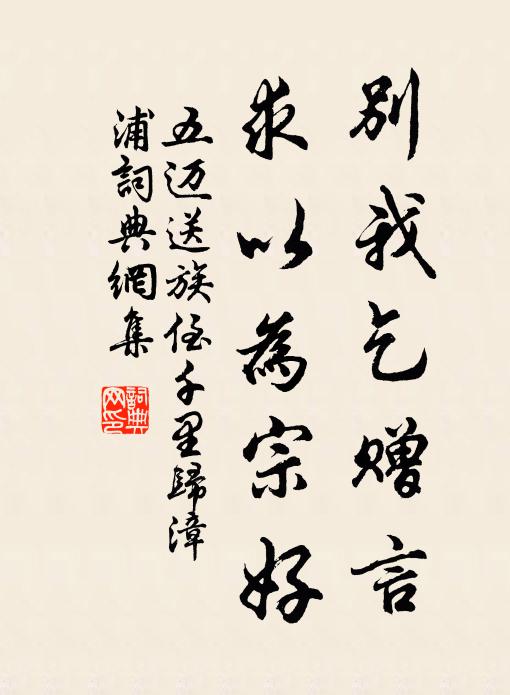 別我乞贈言
求以為宗好
五迈送族侄千里歸漳
浦詞典網集
詞典
网印